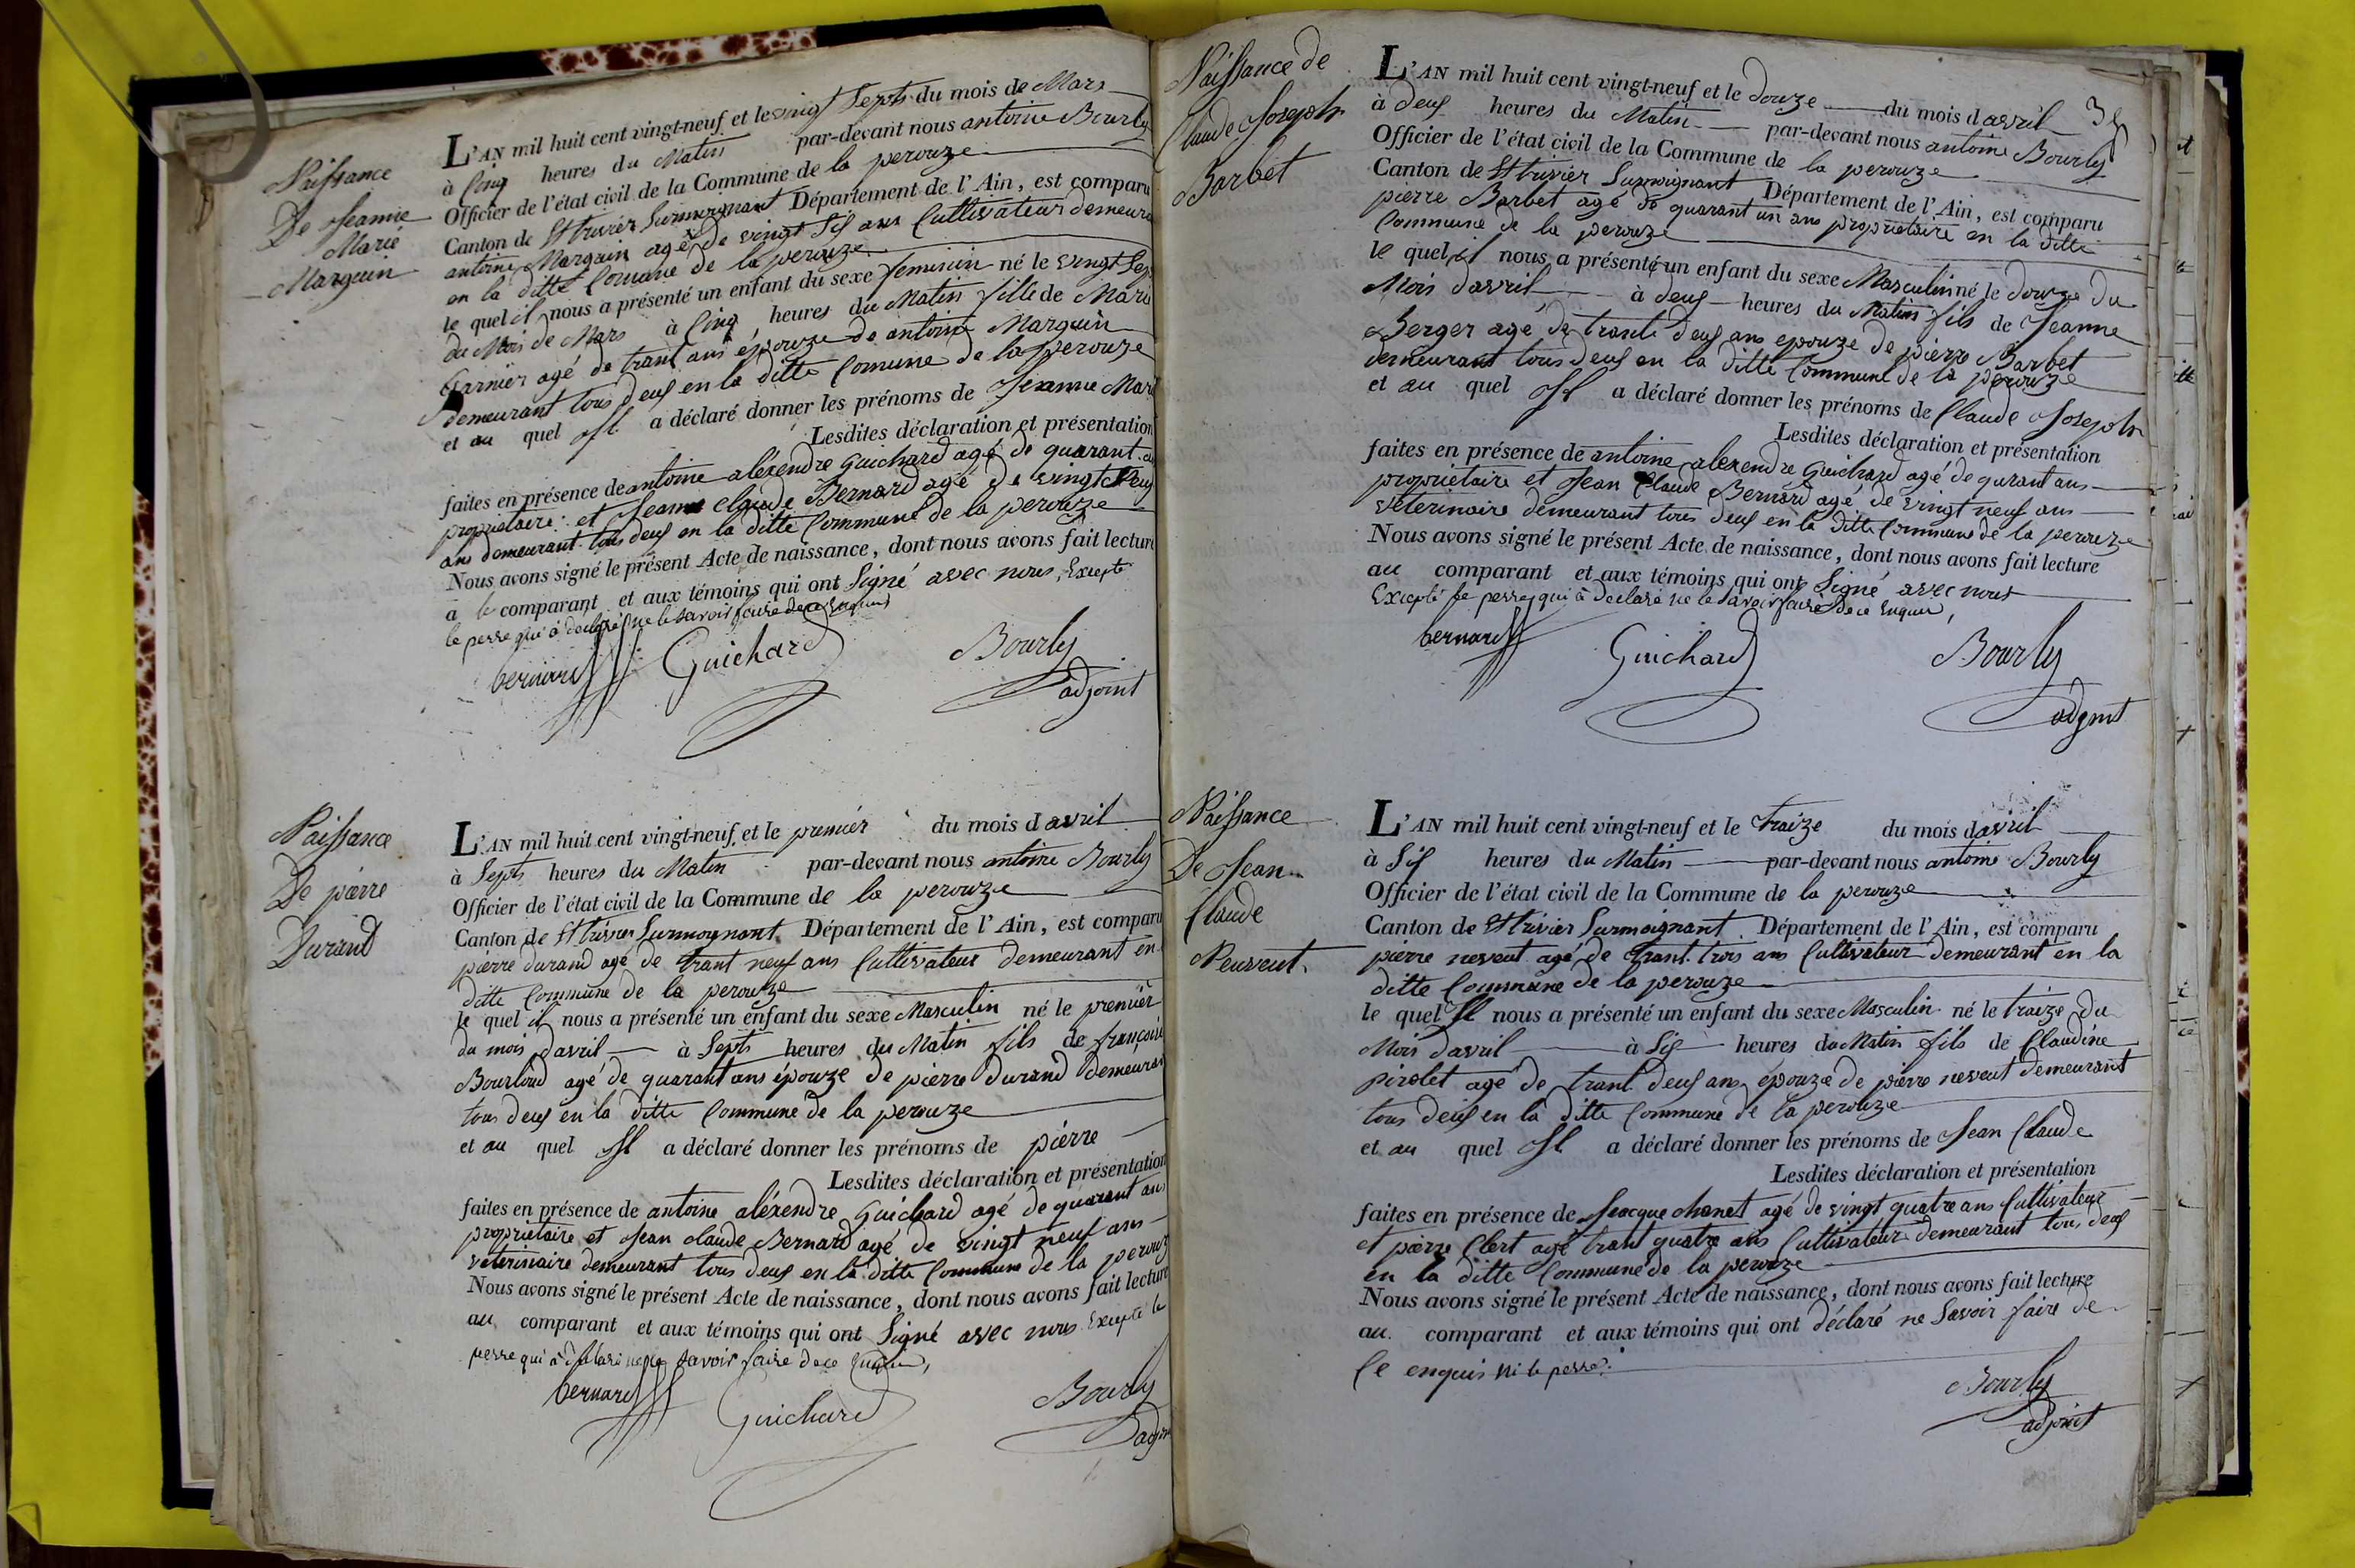 Naissance
De Jeanne
Marie
Marguin
L'AN mil huit cent vingt-neuf et le vingt Septs du mois de Mars
à Cinq heures du Matin par-devant nous antoine Bourly
Officier de l'état civil de la Commune de la perouze
Canton de St trivier Surmoignant Département de l'Ain, est comparu
antoine Marguin agé de vingt Sif ans Cultivateur demeura
en la ditte Comune de la perouze
le quel il nous a présenté un enfant du sexe feminin né le vingt Sep
du Mois de Mars à Cinq heures du Matin fille de Marie
Garnier agé de trant ans épouze de antoine Marguin
demeurant tous deuf en la ditte Comune de la perouze
et au quel Il a déclaré donner les prénoms de Jeanne Mari
Lesdites déclaration et présentation
faites en présence de antoine aléxendre Guichard agé de quarant an
propriétaire et Jean claude Bernard agé de vingt neuf
ans demeurant tous deuf en la ditte Commune de la perouze
Nous avons signé le présent Acte de naissance, dont nous avons fait lecture
a le comparant et aux témoins qui ont Signé avec nous Excepté
le perre qui à déclaré ne le savoir faire de ce Enquis
bernard Guichard Bourly
adjoint
Naissance
De pierre
Durand
L'AN mil huit cent vingt-neuf et le premiér du mois d avril
à Septs heures du Matin par-devant nous antoine Bourly
Officier de l'état civil de la Commune de la perouze
Canton de St trivier Surmoignant Département de l'Ain, est comparu
pierre durand agé de trant neuf ans Cultivateur demeurant en
ditte Commune de la perouze
le quel il nous a présenté un enfant du sexe Masculin né le premiér
du mois d'avril à Septs heures du Matin fils de françoise
Bourloud agé de quarant ans épouze de pierre durand demeuran
tous deuf en la ditte Commune de la perouze
et au quel Il a déclaré donner les prénoms de piérre
Lesdites déclaration et présentation
faites en présence de antoine aléxendre Guichard agé de quarant ans
propriétaire et Jean claude Bernard agé de vingt neuf ans
véterinaire demeurant tous deuf en la ditte Commune de la perouz
Nous avons signé le présent Acte de naissance, dont nous avons fait lecture
au comparant et aux témoins qui ont Signé avec nous Excepté le
perre qui à déclaré ne le savoir faire de ce Enquis,
bernard Guichard Bourly
adjoin
Naissance de
Claude Joseph
Barbet
L'AN mil huit cent vingt-neuf et le douze du mois d avril
à deuf heures du Matin par-devant nous antoine Bourly
Officier de l'état civil de la Commune de la perouze
Canton de St trivier Surmoignant Département de l'Ain, est comparu
pierre Barbet agé de quarant un ans propriétaire en la ditte
Commune de la perouze
le quel il nous a présenté un enfant du sexe Masculin né le douze du
Mois d'avril à deuf heures du Matin fils de Jeanne
Berger agé de trante deuf ans epouze de pierre Barbet
demeurant tous deuf en la ditte Commune de la perouze
et au quel Il a déclaré donner les prénoms de Claude Joseph
Lesdites déclaration et présentation
faites en présence de antoine aléxendre Guichard agé de qurant ans
propriétaire et Jean Claude Bernard agé de vingt neuf ans
véterinaire demeurant tous deuf en la ditte Commune de la perouze
Nous avons signé le présent Acte de naissance, dont nous avons fait lecture
au comparant et aux témoins qui ont Signé avec nous
Excepté le perre qui à déclaré ne le savoir faire de ce Enquis,
bernard Guichard Bourly
adjint
Naissance
De Jean
Claude
Neuveut
L'AN mil huit cent vingt-neuf et le traize du mois d avril
à Sif heures du Matin par-devant nous antoine Bourly
Officier de l'état civil de la Commune de la perouze
Canton de St trivier Surmoignant Département de l'Ain, est comparu
pierre neveut agé de trant trois ans Cultivateur demeurant en la
ditte Commune de la perouze
le quel Il nous a présenté un enfant du sexe Masculin né le traize du
Mois d'avril à Sif heures du Matin fils de Claudine
pirolet agé de trant deuf ans épouze de pierre neveut demeurant
tous deuf en la ditte Commune de la perouze
et au quel Il a déclaré donner les prénoms de Jean Claude
Lesdites déclaration et présentation
faites en présence de Jeacque chanet agé de vingt quatre ans Cultivateur
et pierre Clert agé trant quatre ans Cultivateur demeurant tous deuf
en la ditte Commune de la perouze
Nous avons signé le présent Acte de naissance, dont nous avons fait lecture
au comparant et aux témoins qui ont déclaré ne Savoir faire de
Ce enquis ni le perre.
Bourly
adjoint